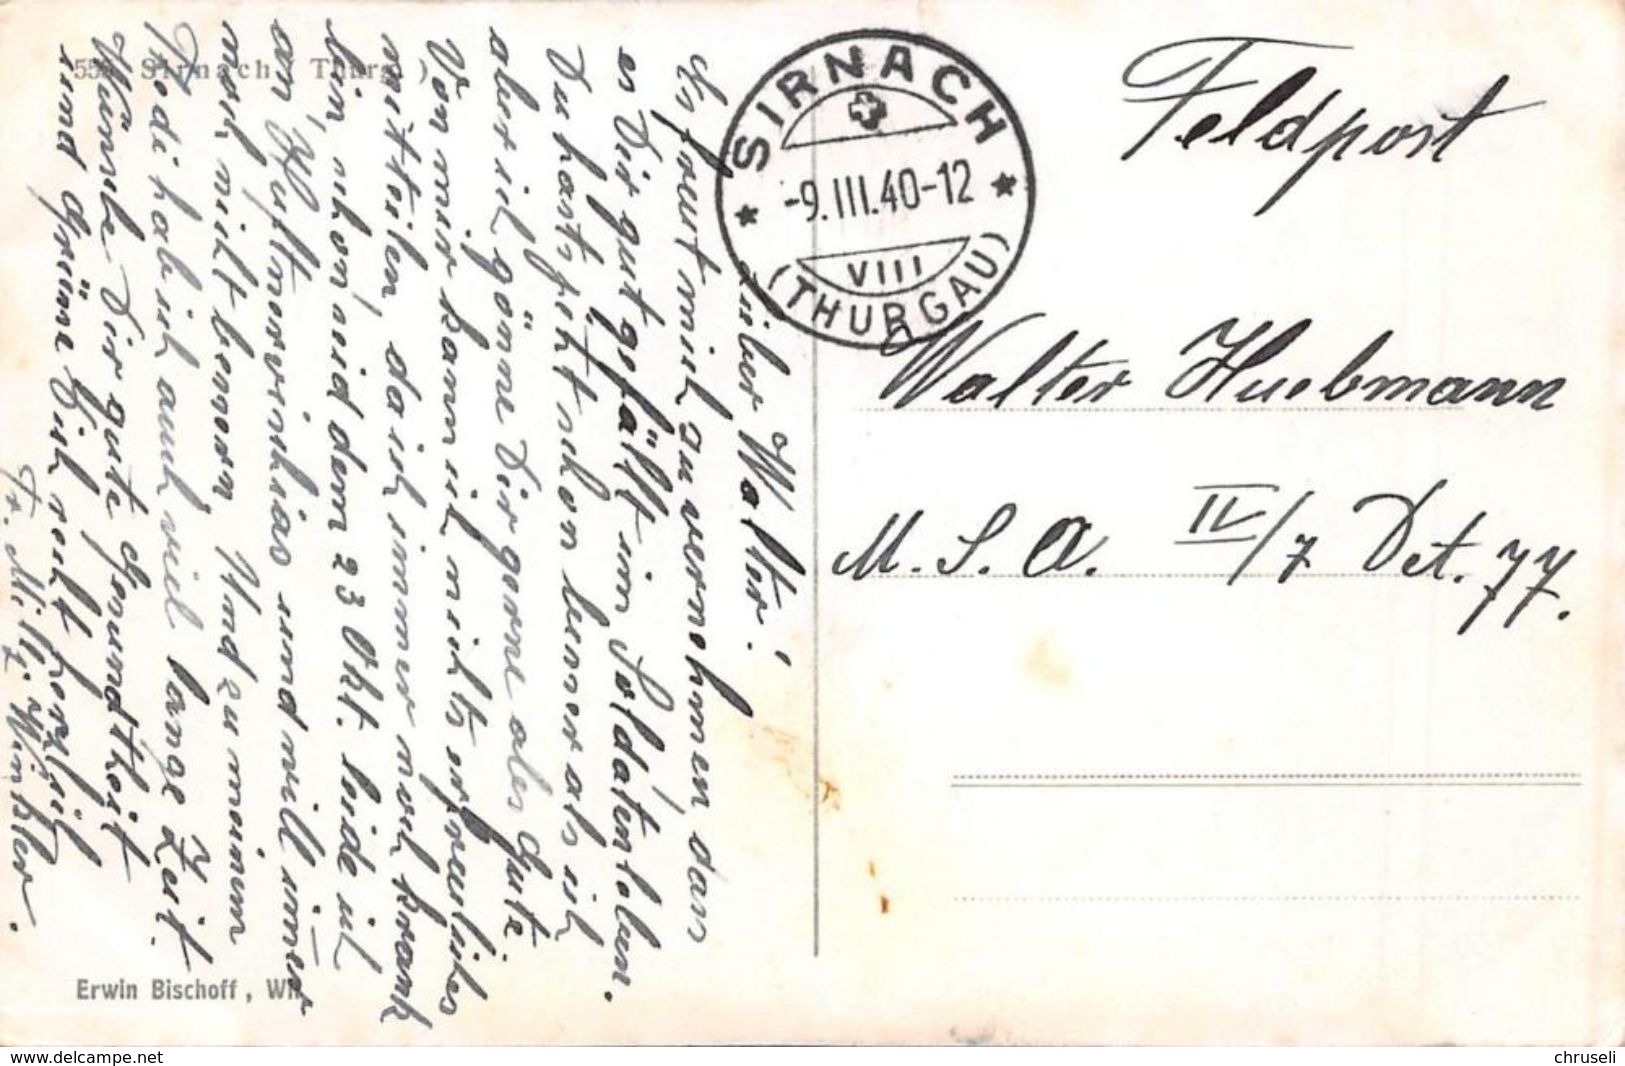 555 Sirnach (Thurg.)
Lieber Walter!
Es freut mich zu vernehmen, dass
es Dir gut gefällt im Soldatenleben.
Du hasts jetzt schon besser als ich
aber ich gönne Dir gerne alles Gute.
Von mir kann ich nichts erfreuliches
mitteilen, da ich immer noch krank
bin, schon seid dem 23 Okt. leide ich
an und will immer
noch nicht bessern. Und zu meinem
Thedi hab ich auch viel lange Zeit.
Wünsche Dir gute Gesundheit
und grüsse Dich recht herzlich
Fr. Winkler.
Erwin Bischoff, Wil
SIRNACH
-9.III.40-12
VIII
(THURGAU)
Feldpost
Walter Huebmann
M. S. A. IV/7 Det. 77.
www.delcampe.net
chruseli